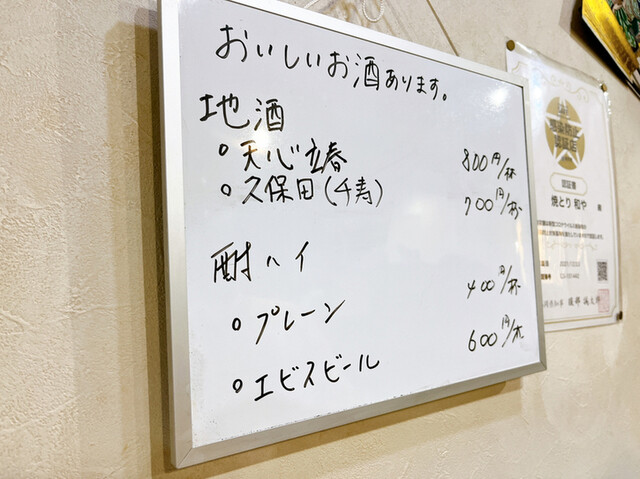 おいしいお酒あります。
地酒
○天心立春 800円/杯
○久保田(千寿) 700円/杯
酎ハイ
○プレーン 400円/杯
○エビスビール 600円/本
認証書
焼とり 和や